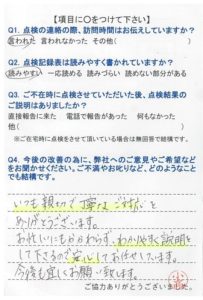 【項目に○をつけて下さい】
Q1. 点検の連絡の際、訪問時間はお伝えしていますか?
言われた 言われなかった その他( )
Q2. 点検記録表は読みやすく書かれていますか?
読みやすい 一応読める 読みづらい 読めない部分がある
Q3. ご不在時に点検させていただいた後、点検結果の
ご説明はありましたか?
直接報告に来た 電話で報告があった 何もなかった
他( )
※ご在宅時に点検をさせて頂いている場合は無回答で結構です。
Q4. 今後の改善の為に、弊社へのご意見やご希望など
をお聞かせください。ご不満やお叱りなど、どのようなこと
でも結構です。
いつも親切で丁寧なご対応を
ありがとうございます。
わかりやすく説明を
して下さるので安心してお任せしています。
今後も宜しくお願い致します。
ご協力ありがとうございました。